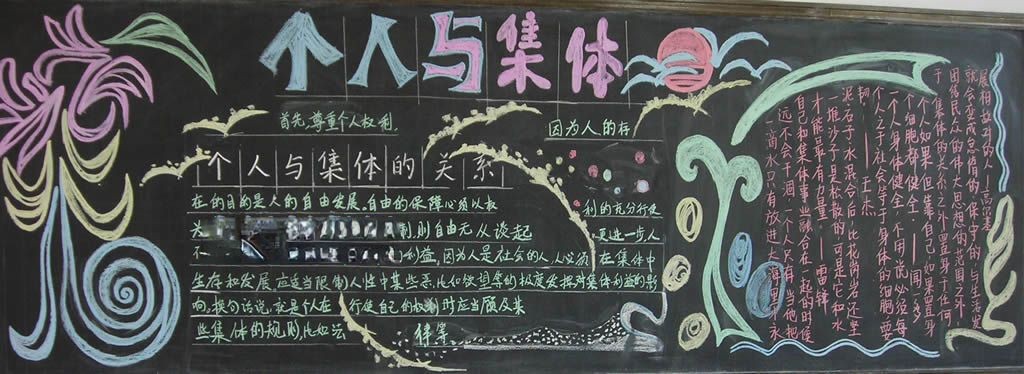 个人与集体
首先,尊重个人权利,
因为人的存
个人与集体的关系
在的目的是人的自由发展,自由的保障必须以权 利的充分行使
为 利,则自由无从谈起 更进一步,人
不 利益,因为人是社会的人,人必须 在集体中
生存和发展,应适当限制人性中某些恶,比如欲望等的极度发挥对集体利益的影
响,换句话说,就是个人在 行使自己的权利时应当顾及某
些集体的规则,比如 律等
一滴水只有放进大海里才永
远不会干涸,一个人只有当他把
自己和集体事业融合在一起的时候
才能最有力量——雷锋
一堆沙子是松散的,可是它和水
泥石子、水混合后,比花岗岩还坚
韧——王杰
个人之于社会等于身体的细胞,要
一个人身体健全,不用说必须每
个细胞都健全——闻一多
一个人如果但靠自己,如果置身
于集体的关系之外,置身于任何
团结民众的伟大思想的范围之外,
就会变成怠惰的、保守的、与生活发
展相敌对的人——高尔基